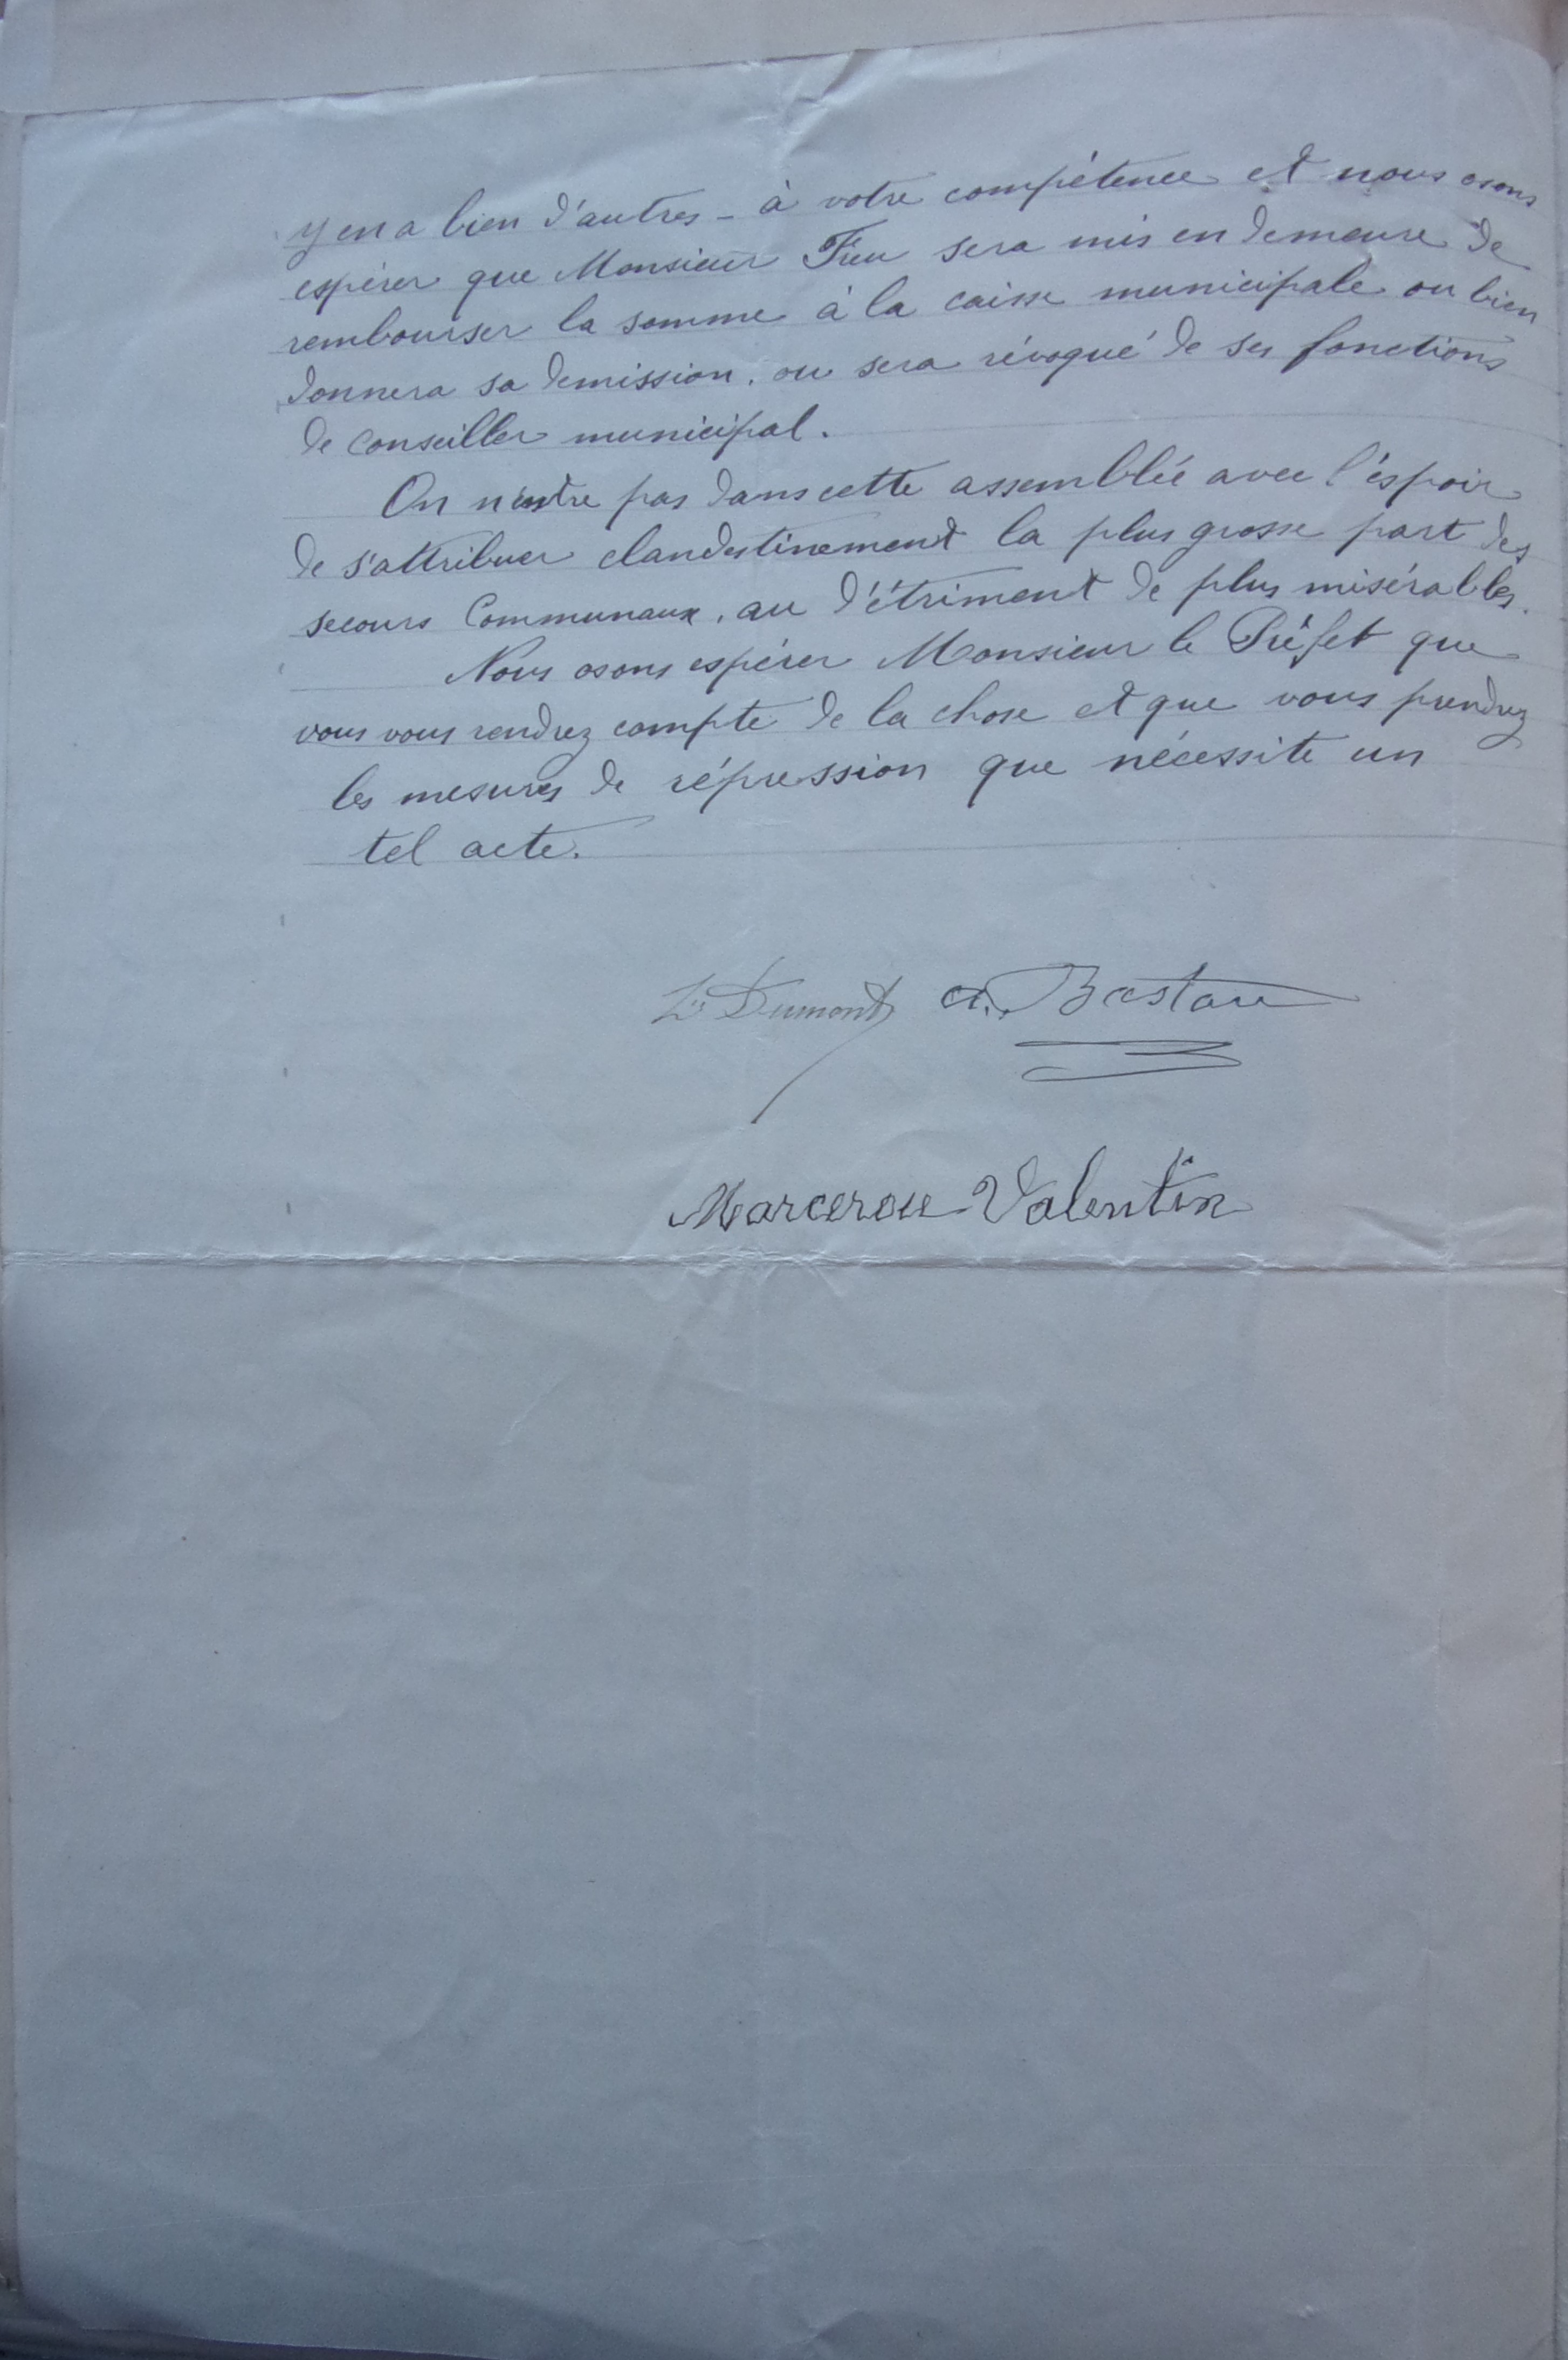 y en a bien d'autres - à votre compétence et nous osons
espérer que Monsieur Fieu sera mis en demeure de
rembourser la somme à la caisse municipale ou bien
donnera sa demission, ou sera révoqué de ses fonctions
de conseiller municipal.
On n'entre pas dans cette assemblée avec l'éspoir
de s'attribuer clandestinement la plus grosse part des
secours Communaux, au détriment de plus misérables.
Nous osons espérer Monsieur le Préfet que
vous vous rendrez compte de la chose et que vous prendrez
les mesures de répression que nécessite un
tel acte.
Dumont A. Bastou
Marcerou Valentin